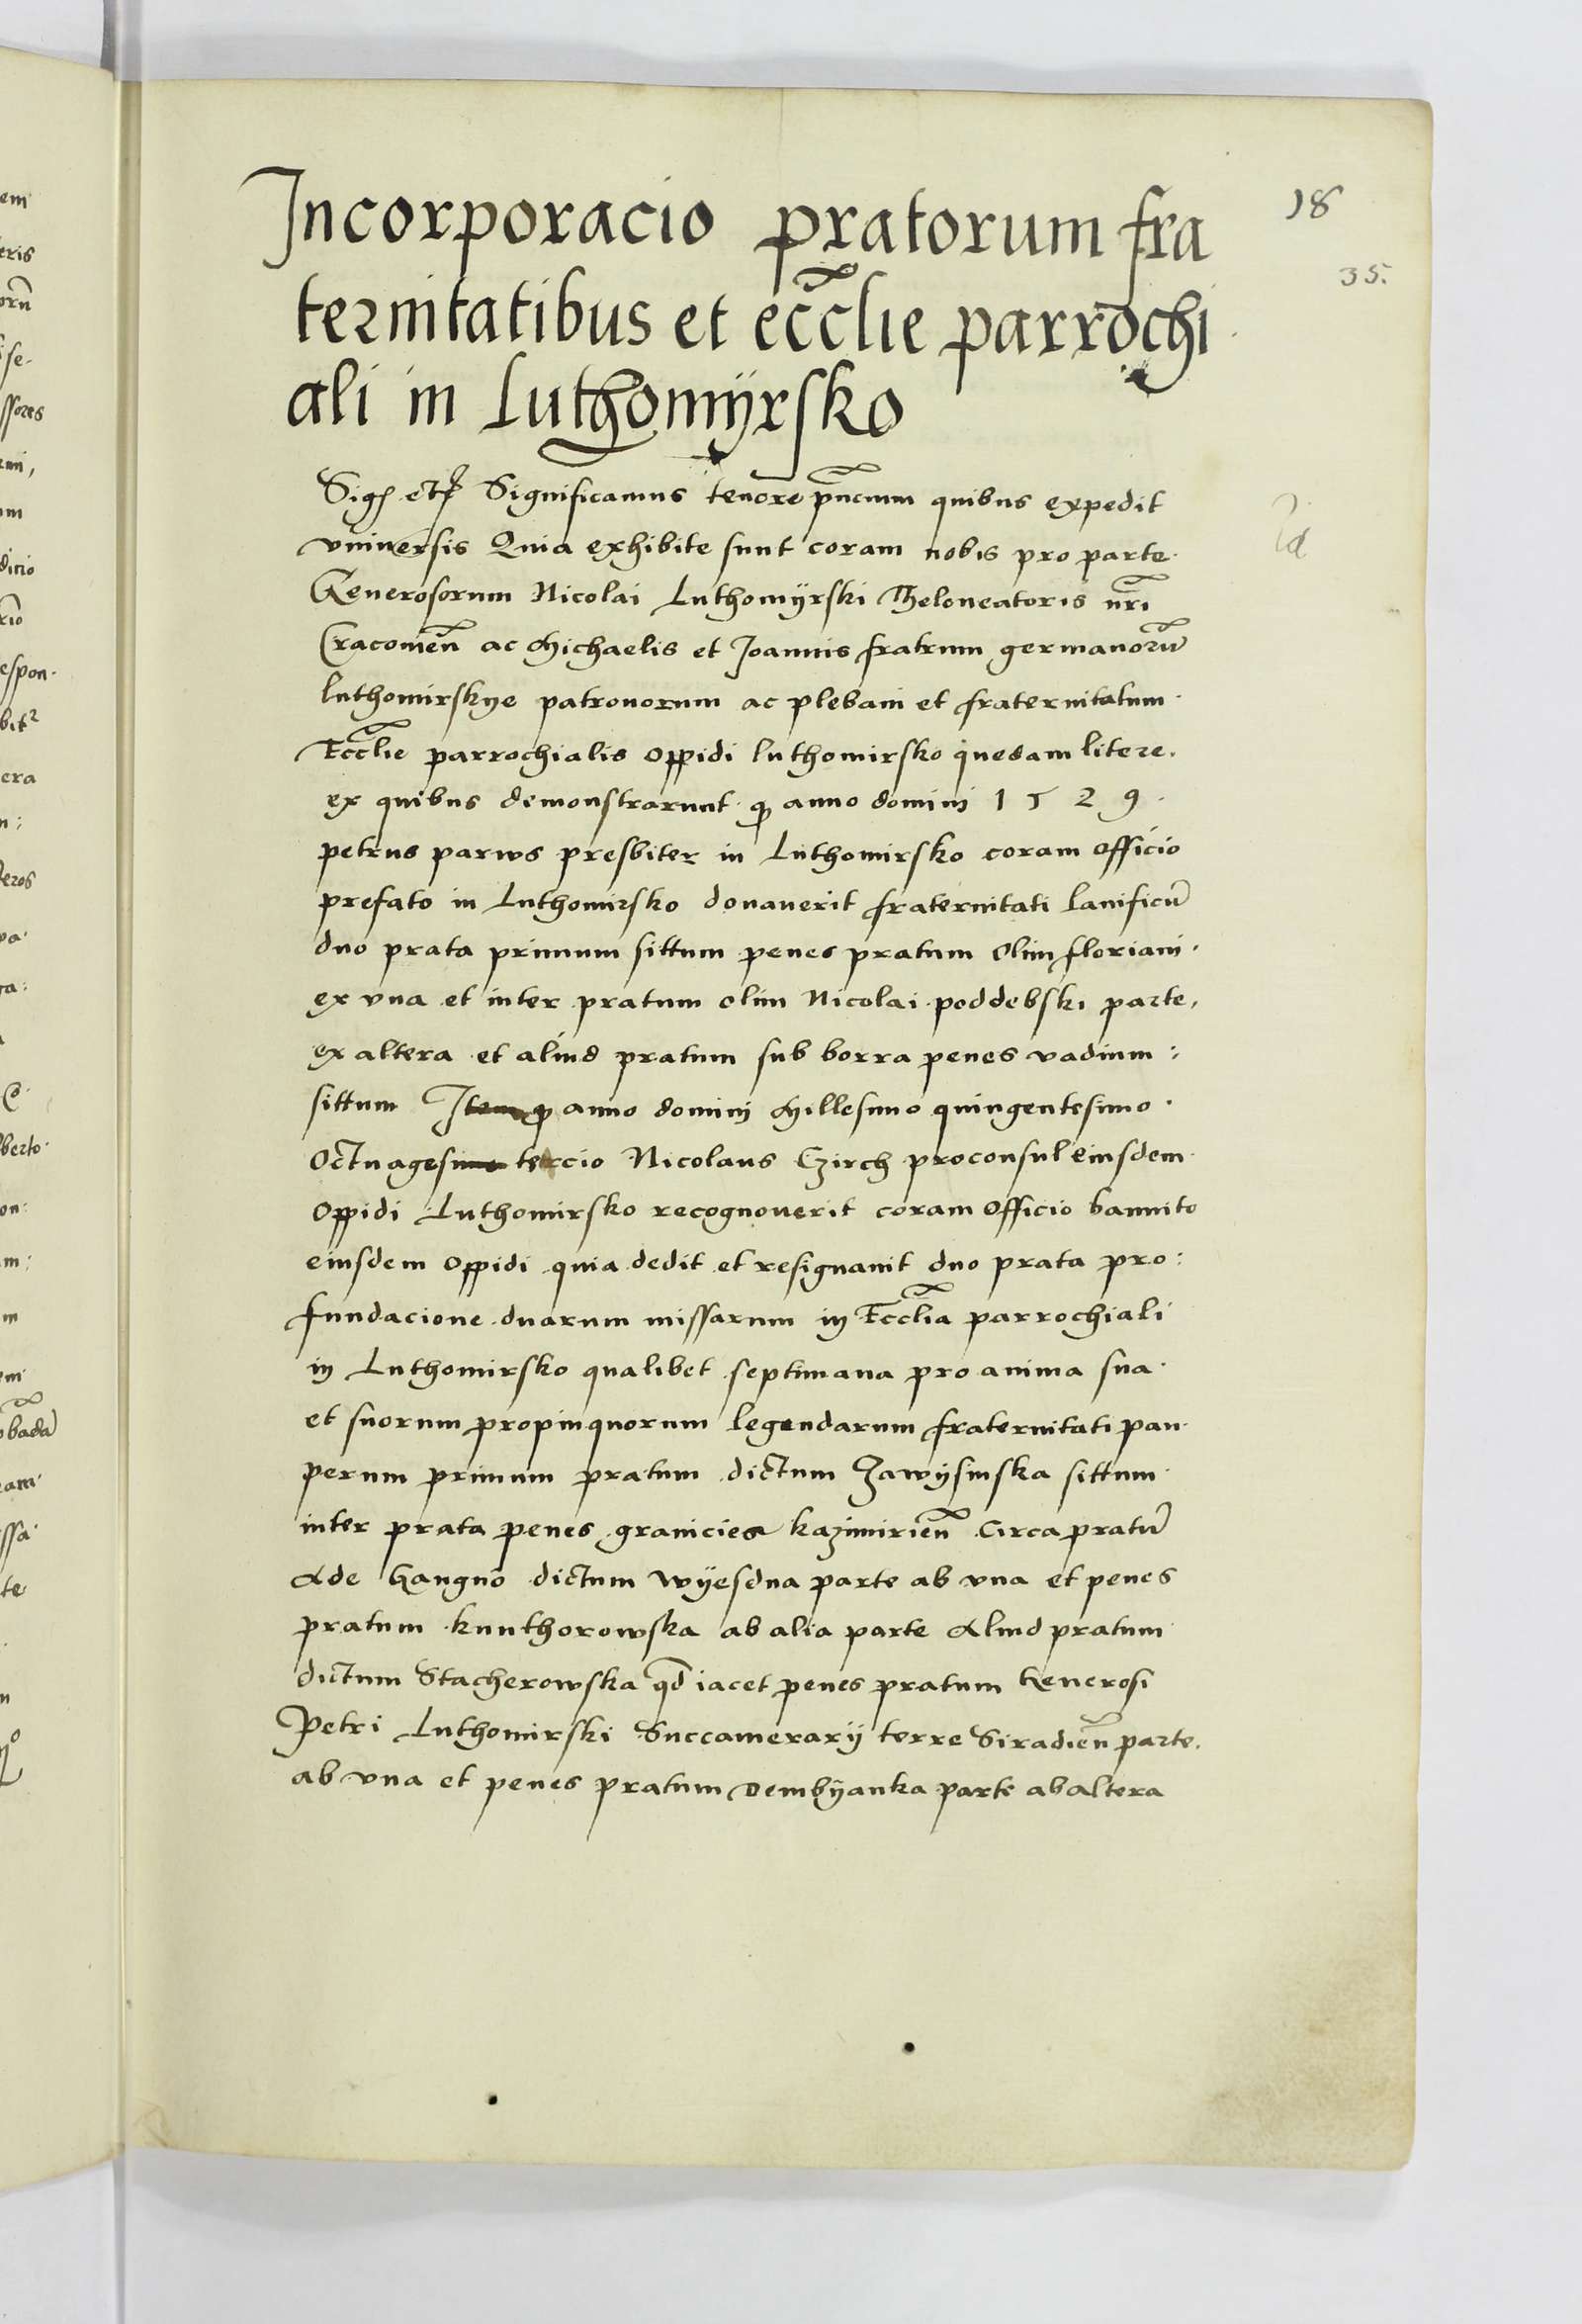 Incorporacio pratorum fra
18
35.
ternitatibus et eccl̃ie parrochi
ali in Luthomÿrsko
Significamus tenore pñcium quibus expedit
vniuersis Quia exhibite sunt coram nobis pro parte
Generosorum Nicolai Luthomÿrski Theloneatoris nr̃i
Cracouieñ ac Michaelis et Joannis fratrum germanorũ
luthomirskye patronorum ac plebani et fraternitatum
Eccl̃ie parrochialis oppidi luthomirsko quedam litere.
ex quibus demonstrarunt ꝙ anno domini 1529.
petrus parws presbiter in Luthomirsko coram officio
prefato in Luthomirsko donauerit fraternitati lanificũ
duo prata primum sittum penes pratum olim floriani.
ex vna et inter pratum olim Nicolai poddebski parte,
ex altera et aliud pratum sub borra penes vadium:
sittum Item ꝙ anno domini Millesimo quingentesimo.
Octuagesimo tercio Nicolaus Czirch proconsul eiusdem
oppidi Luthomirsko recognouerit coram officio bannito
eiusdem oppidi quia dedit et resignauit duo prata pro:
fundacione duarum missarum in Eccl̃ia parrochiali
in Luthomirsko qualibet septimana pro anima sua.
et suorum propinquorum legendarum fraternitati pau
perum primum pratum dictum Zawÿsinska sittum
inter prata penes granicies kazimirieñ circa pratũ
de dictum Wÿesdna parte ab vna et penes
pratum kunthorowska ab alia parte Aliud pratum
dictum Stacherowska qd̃ iacet penes pratum Generosi
Petri Luthomirski Succamerarÿ terre Siradieñ parte.
ab vna et penes pratum Dembÿanka parte ab altera